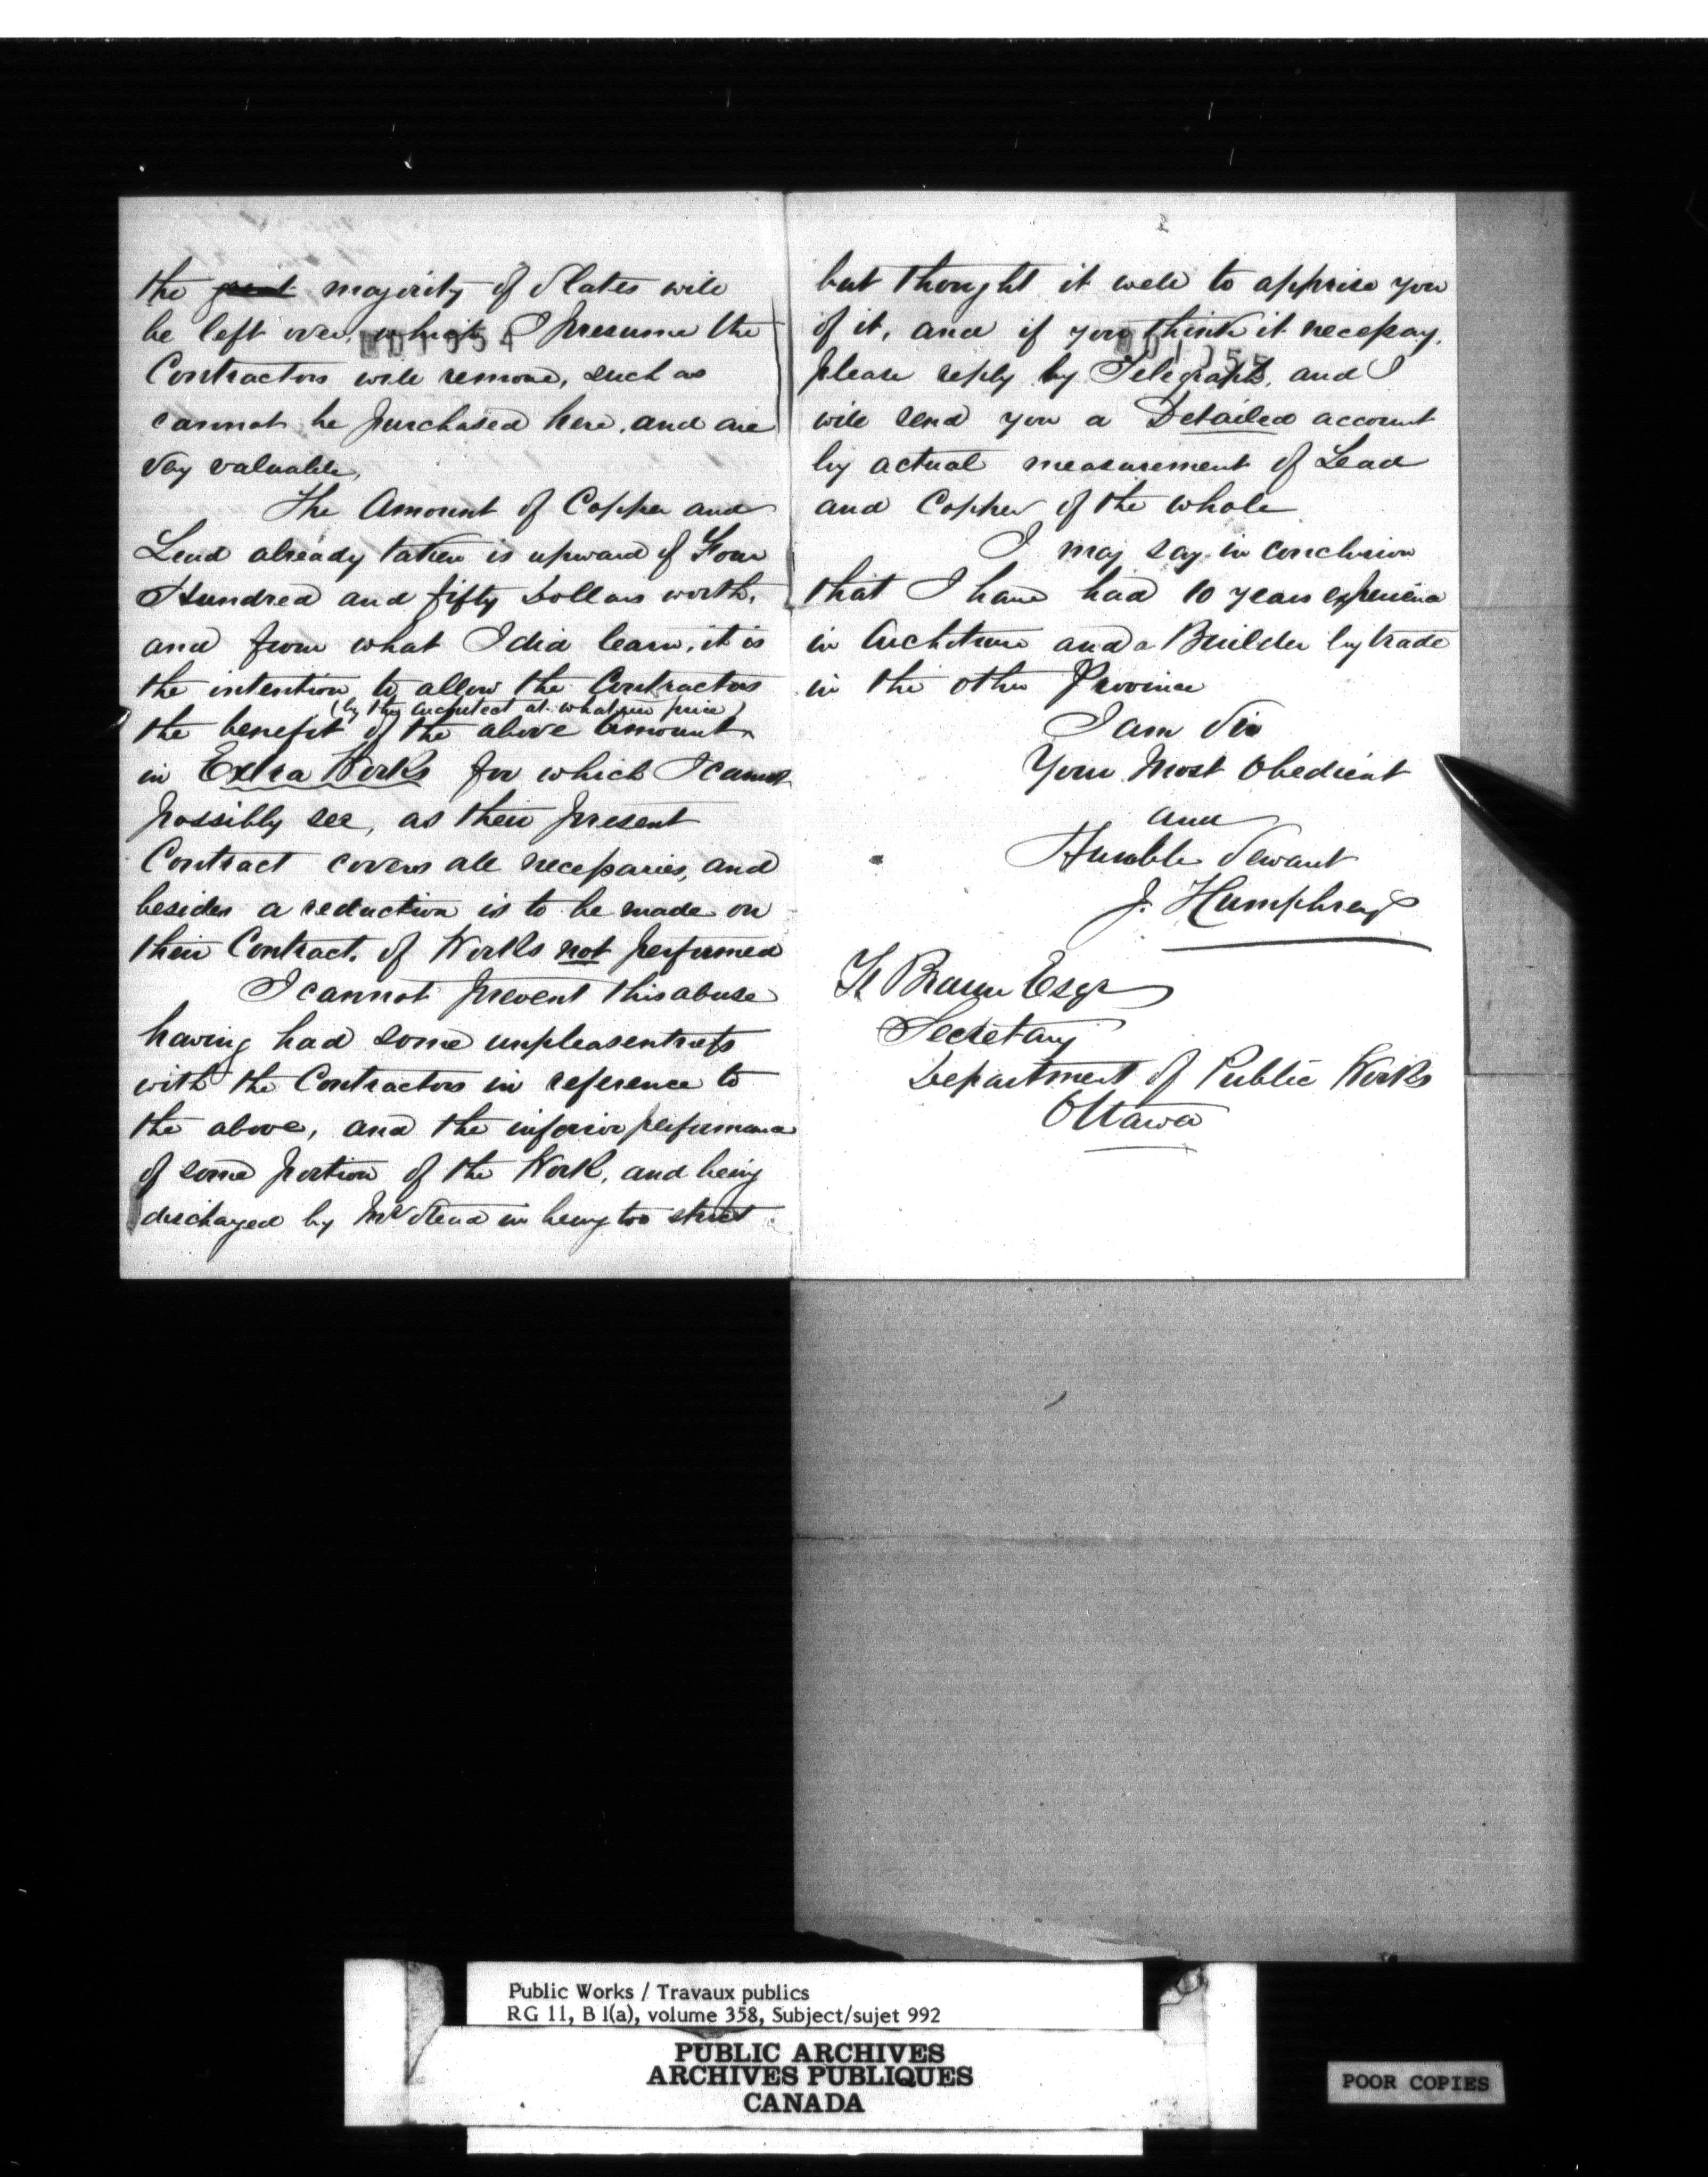 the great majority of Slates will
be left over, which I presume the
Contractors will remove, such as
cannot be purchased here, and are
very valuable,
The Amount of Copper and
Lead already taken is upward of Four
Hundred and fifty Dollars worth,
and from what I did learn, it is
the intention, to allow the Contractors
(by the Architect at whatever price)
the benefit of the above Amount
in Extra Works for which I cannot
possibly see, as their present
Contract covers all necessaries, and
besides a reduction is to be made on
their Contract, of Works not performed
I cannot prevent this abuse
having had some unpleasentness
with the Contractors in reference to
the above, and the inferior performance
of some portion of the Work, and being
discharged by Mr Stead in being too strict
but thought it well to apprise you
of it, and if you think it necessary,
please reply by Telegraph, and I
will send you a Detailed account
by actual measurement of Lead
and Copper of the whole
I may say in conclusion
that I have had 10 years experience
in Architecture and a Builder by trade
in the other Province
I am Sir
Your Most Obedient
and
Humble Servant
J. Humphreys
F. Braun Esqr
Secretary
Department of Public Works
Ottawa
Public Works / Travaux publics
RG 11, B 1(a), volume 358, Subject/sujet 992
PUBLIC ARCHIVES
ARCHIVES PUBLIQUES
CANADA
POOR COPIES